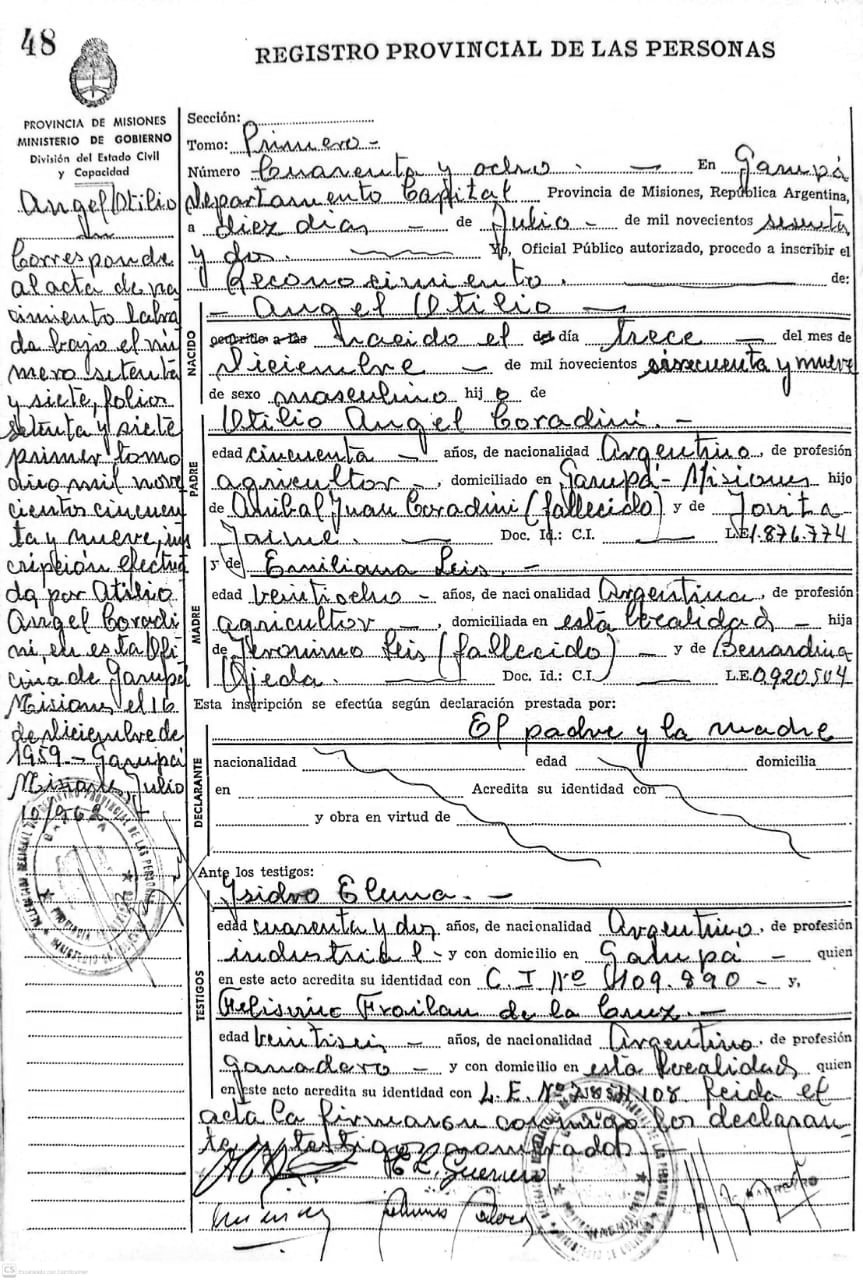 48
REGISTRO PROVINCIAL DE LAS PERSONAS
PROVINCIA DE MISIONES
MINISTERIO DE GOBIERNO
División del Estado Civil
y Capacidad
Angel Otilio
Corresponde
al acta de na
cimiento labra
da bajo el nú
mero setenta
y siete, folios
setenta y siete
primer tomo
dico mil nove
cientos cincuen
ta y nueve, ins
cripción efectua
da por Atilio
Angel Coradi
ni, en esta Ofi
cina de Garupá
Misiones el 16
de diciembre de
1959 - Garupá
Misiones, Julio
10/962
Sección:
Tomo: Primero -
Número Cuarenta y ocho . — En Garupá
departamento Capital Provincia de Misiones, República Argentina,
a diez dias - de Julio - de mil novecientos sesenta
y dos. Yo, Oficial Público autorizado, procedo a inscribir el
Reconocimiento. de:
NACIDO
- Angel Otilio —
nacido el día trece — del mes de
diciembre — de mil novecientos cincuenta y nueve
de sexo masculino hijo de
PADRE
Otilio Angel Coradini. -
edad cincuenta - años, de nacionalidad Argentino, de profesión
agricultor -, domiciliado en Garupá - Misiones hijo
de Anibal Juan Coradini (fallecido) y de Jovita
Jaime. — Doc. Id.: C.I. — L.E. 1.876.774
MADRE
y de Emiliana Leis. -
edad veintiocho - años, de nacionalidad Argentina, de profesión
agricultor -, domiciliada en esta localidad - hija
de Jeronimo Leis (fallecido) — y de Benardina
Ojeda. — Doc. Id.: C.I. — L.E. 0920504
Esta inscripción se efectúa según declaración prestada por:
DECLARANTE
El padre y la madre
nacionalidad edad domicilia
en Acredita su identidad con
y obra en virtud de
Ante los testigos:
TESTIGOS
Ysidro Elena. -
edad cuarenta y dos años, de nacionalidad Argentino, de profesión
industrial - y con domicilio en Garupá - quien
en este acto acredita su identidad con C. I Nº 109.890 - y,
Froilan de la Cruz. -
edad veintiseis - años, de nacionalidad Argentino, de profesión
ganadero - y con domicilio en esta localidad quien
en este acto acredita su identidad con L. E. Nº leida el
acta la firmaron conmigo los declaran-
te y testigos nombrados
Guerrero
CS Escaneado con CamScanner